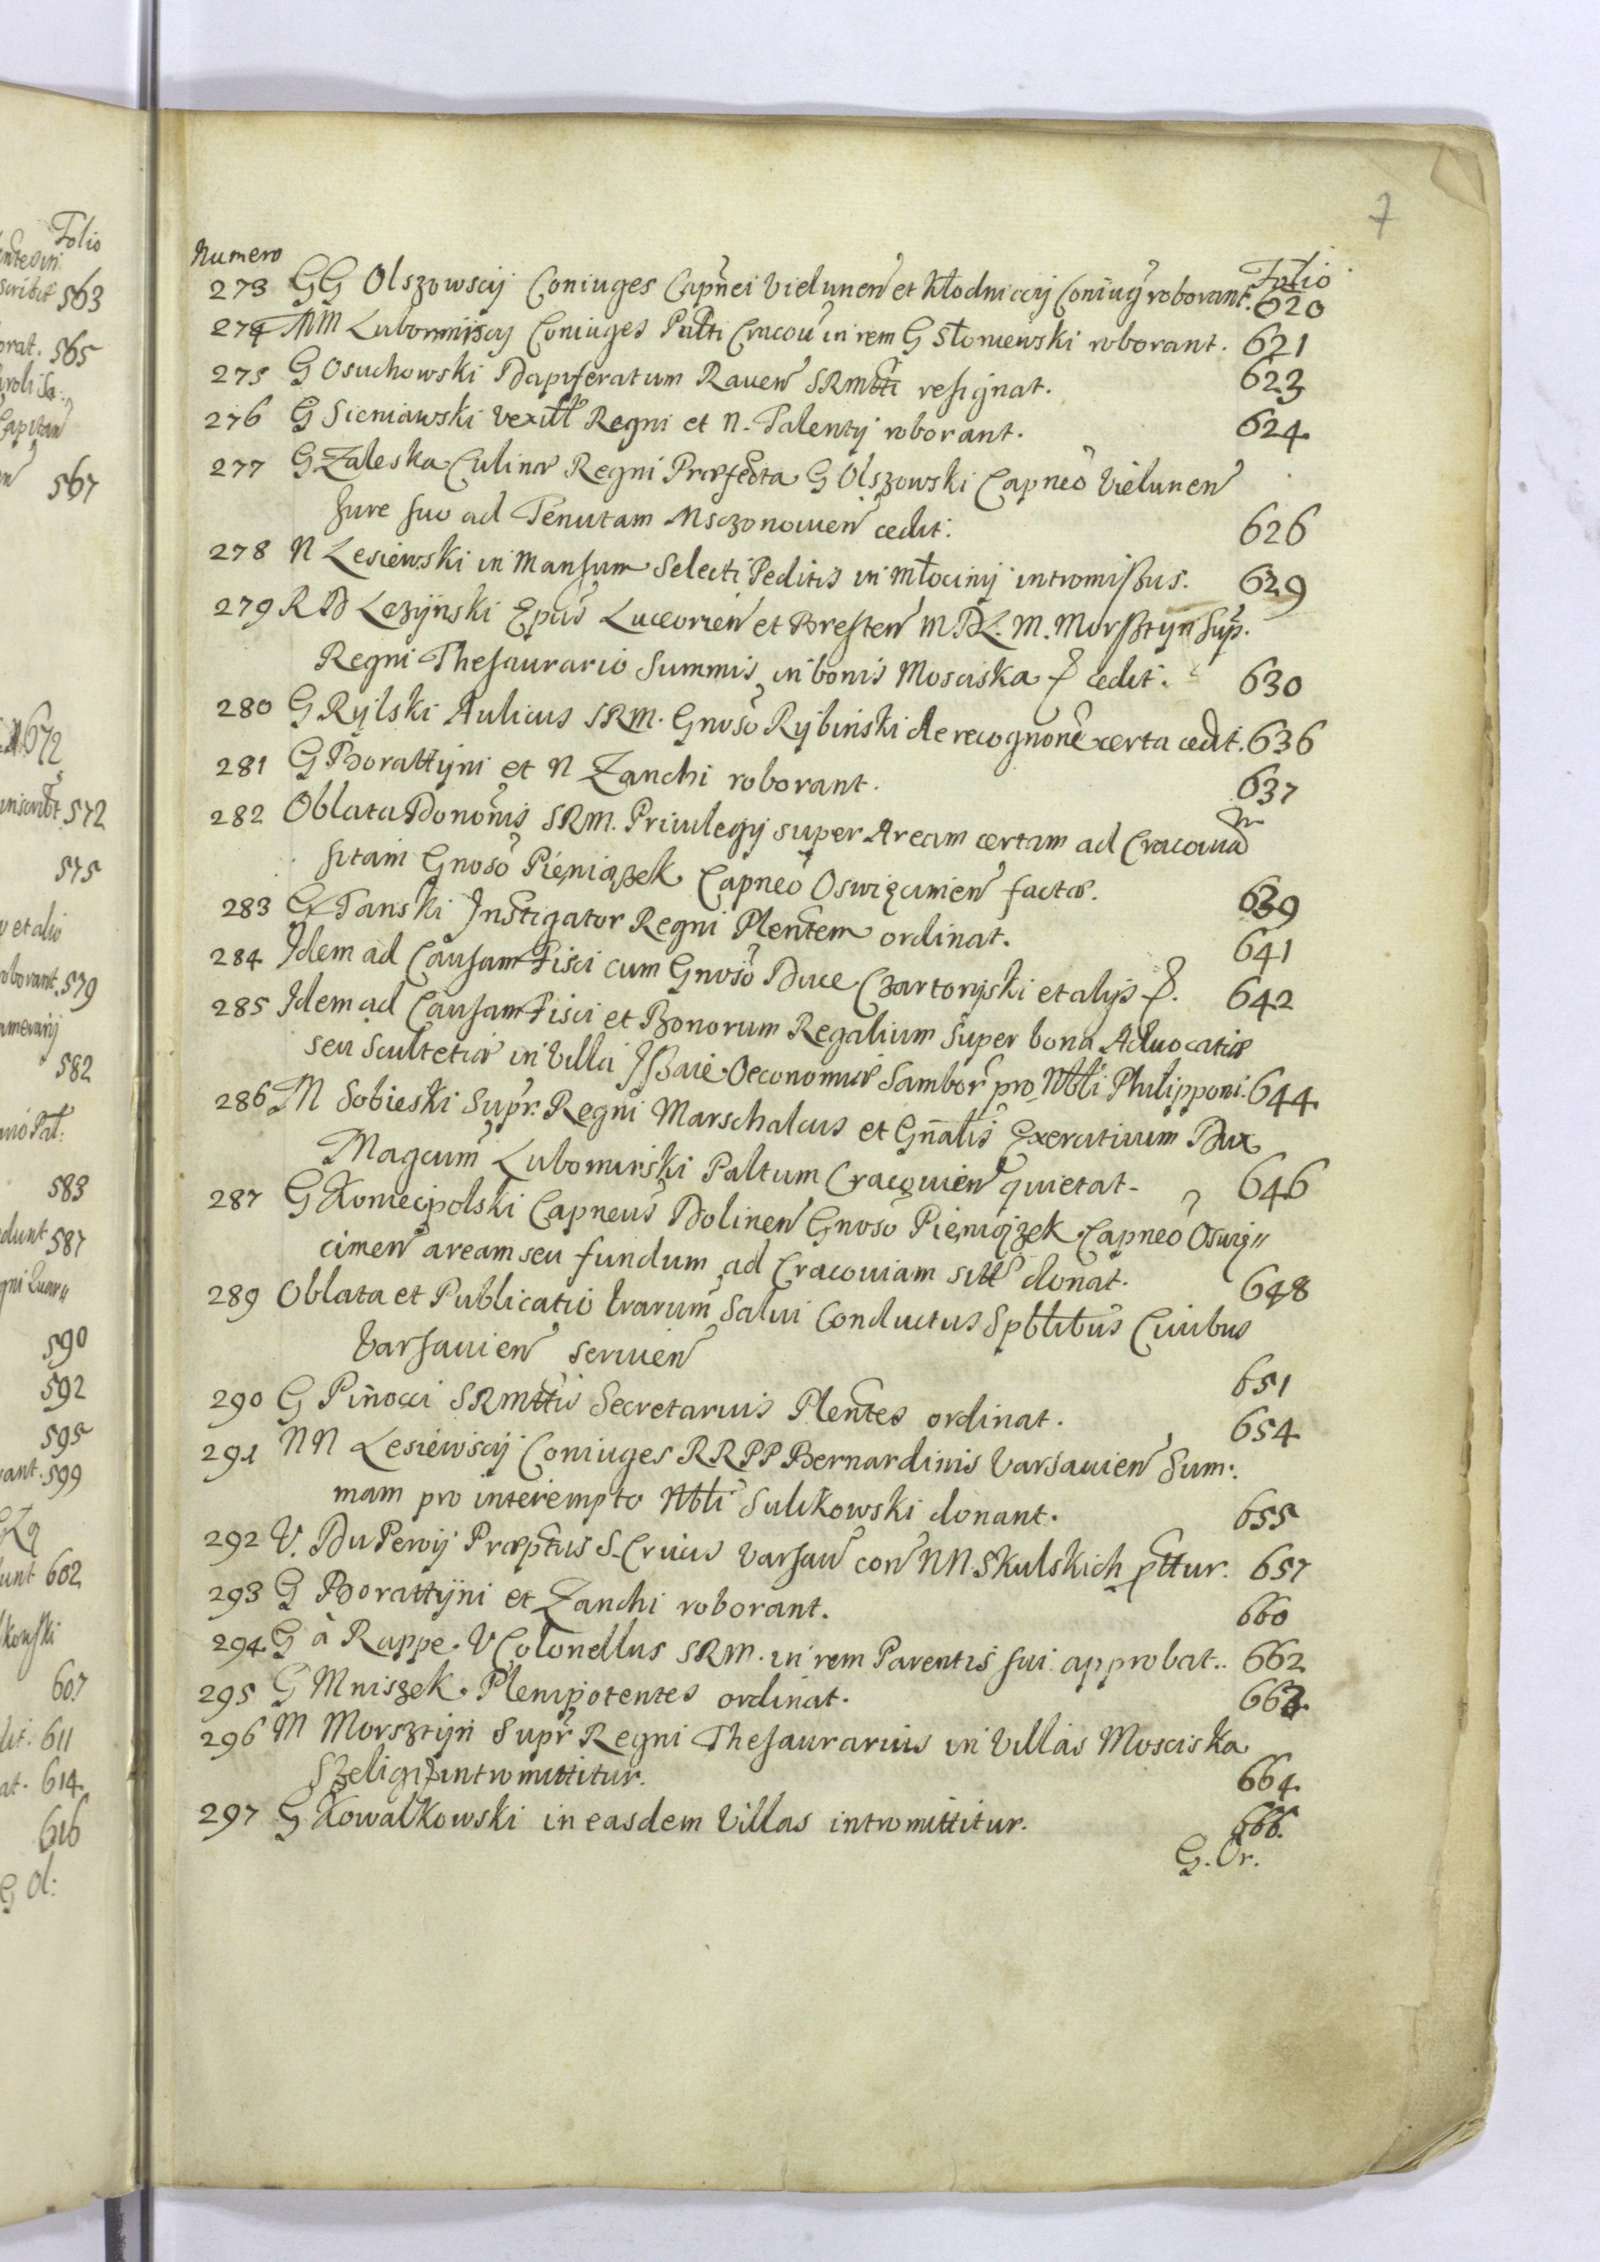 7
Numero Folio
273 GG Olszowscij Coniuges Capnei Vielunen et Kłodniccij Coniug roborant. 620
274 MM Lubormiscij Coniuges Palti Cracou in rem G Słoniewski roborant. 621
275 G Osuchowski Dapiferatum Rauen SRMtti resignat. 623
276 G Sieniawski Vexill Regni et N. Talentij roborant. 624
277 G Zaleska Culinæ Regni Præfecta G Olszowski Capneo Vielunen
Jure suo ad Tenutam Msczonouien cedit. 626
278 N Lesiewski in Mansum Selecti Peditis in Młocinij intromissus. 629
279 R D Lezijnski Epus Luceorien et Bresten M D L. M. Morsztyn Sup.
Regni Thesaurario Summis in bonis Mosciska & cedit. 630
280 G Rylski Aulicus SRM. Gnoso Rybiński de recognone certa cedit. 636
281 G Borattijni et N Zanchi roborant. 637
282 Oblata Dononis SRM. Priuilegij super Aream certam ad Cracouia
sitam Gnoso Pieniązek Capneo Oswięcimen factæ. 639
283 G Tanski Instigator Regni Plentem ordinat. 641
284 Idem ad Causam Fisci cum Gnoso Duce Czartoryski et alijs &. 642
285 Idem ad Causam Fisci et Bonorum Regalium Super bona Aduocatiæ
seu Scultetiæ in Villa Isaie Oeconomiæ Sambor pro Nbli Philipponi. 644
286 M Sobieski Supr. Regni Marschalcus et Gnalis Exercituum Dux
Magcum Lubomirski Paltum Cracouien quietat. 646
287 G Koniecpolski Capneus Dolinen Gnoso Pieniązek Capneo Oswię
cimen aream seu fundum ad Cracouiam sitt donat. 648
289 Oblata et Publicatio Lrarum Salui Conductus Spbtlibus Ciuibus
Varsauien seruien 651
290 G Pinocci SRMttis Secretarius Plentes ordinat. 654
291 NN Lesiewscij Coniuges RRPP Bernardinis Varsauien Sum:
mam pro interempto Nbli Sulikowski donant. 655
292 V. Du Peroij Præptus S. Crucis Varsau con NN Skulskich pttur. 657
293 G Borattijni et Zanchi roborant. 660
294 G à Rappe. V Colonellus SRM. in rem Parentis sui approbat. 662
295 G Mniszek. Plenipotentes ordinat. 663
296 M Morsztijn Supr Regni Thesaurarius in Villas Mosciska
Szeligi & intromittitur. 664
297 G Kowalkowski in easdem Villas intromittitur. 666.
G. Or.
Folio
563
565
567
672
572
575
et alio
roborant. 579
582
583
587
590
592
595
599
602
607
611
614
616
G Ol: